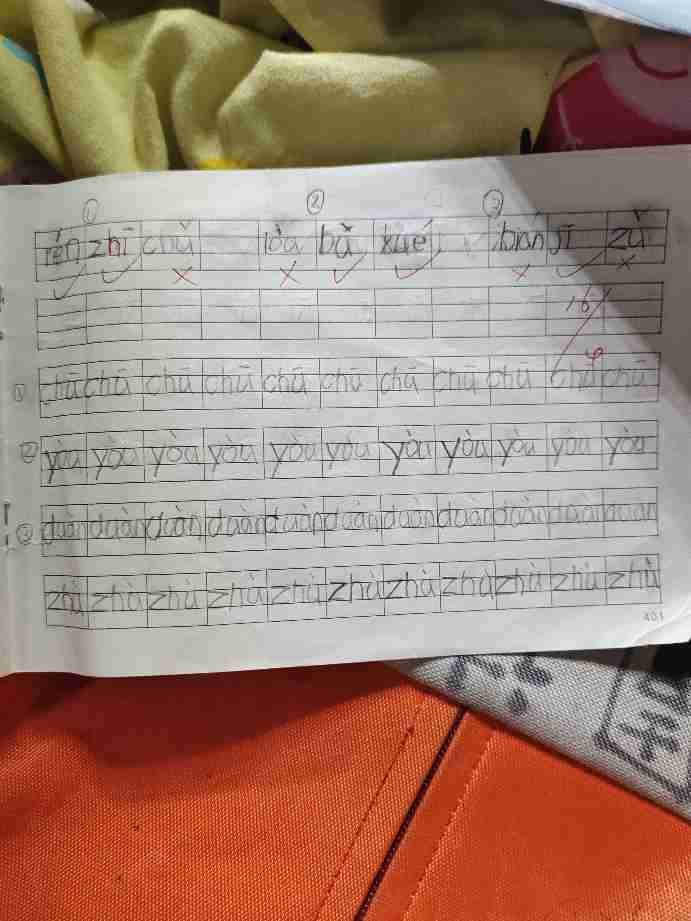 ① ② ③
rén zhī chǔ bǔ xué jī zǔ
① chū chū chū chū chū chū chū chū chū chū chū
② yòu yòu yòu yòu yòu yòu yòu yòu yòu yòu yòu
③ duàn duàn duàn duàn duàn duàn duàn duàn duàn duàn duàn
zhù zhù zhù zhù zhù zhù zhù zhù zhù zhù zhù
401